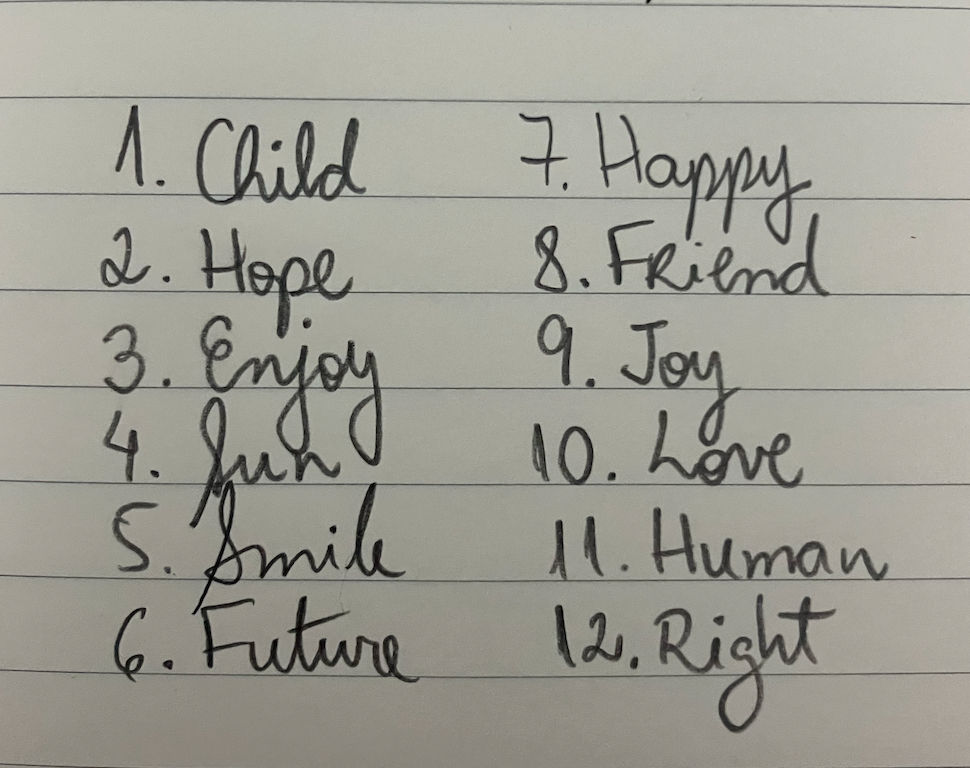 1. Child
2. Hope
3. Enjoy
4. Sun
5. Smile
6. Future
7. Happy
8. Friend
9. Joy
10. Love
11. Human
12. Right